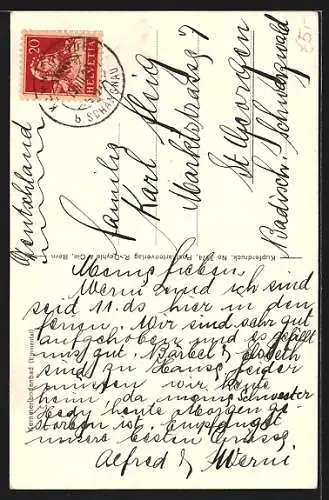 20
HELVETIA
b. SCHANGNAU
Deutschland
Familie
Karl Heig
Marktstrasse 7
St Georgen
Badisch. Schwarzwald
Kupferdruck. No 3574, Postkartenverlag R. Deyhle & Cie, Bern.
Kemmeribodenbad (Emmental)
Meine Lieben.
Werni und ich sind
seid 11. ds hier in den
Ferien. Wir sind sehr gut
aufgehoben und es gefällt
uns gut. Bärbel & Lisbeth
sind zu Hause, leider
müssen wir heute
heim da meine Schwester
Hedy heute Morgen ge-
storben ist. Empfanget
unsere besten Grüsse
Alfred & Werni